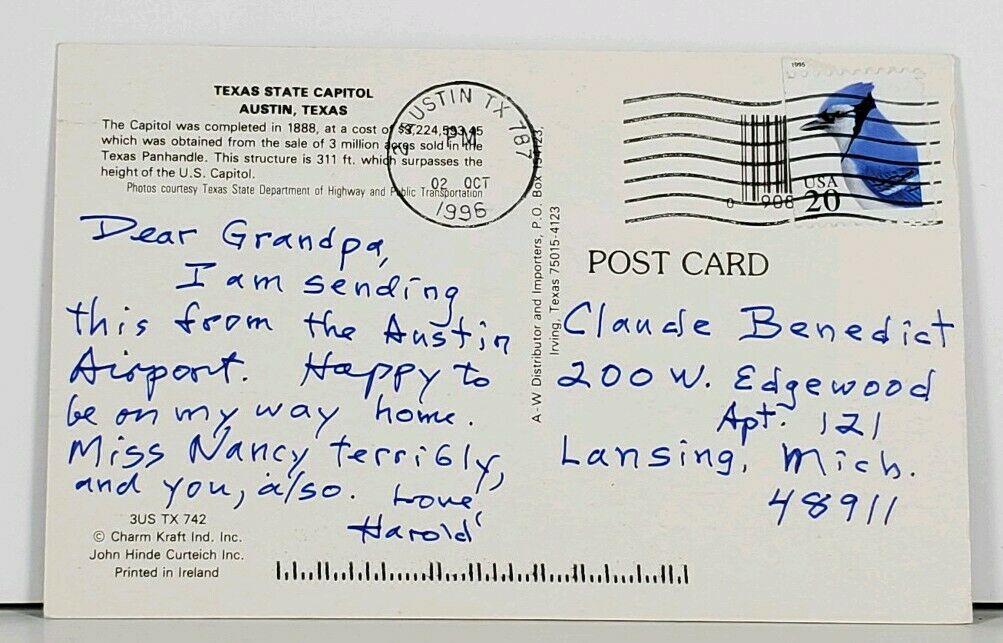 TEXAS STATE CAPITOL
AUSTIN, TEXAS
The Capitol was completed in 1888, at a cost of $3,224,593.45
which was obtained from the sale of 3 million acres sold in the
Texas Panhandle. This structure is 311 ft. which surpasses the
height of the U.S. Capitol.
Photos courtesy Texas State Department of Highway and Public Transportation
AUSTIN TX 787
PM
02 OCT
1996
1995
USA
20
0 908
Dear Grandpa,
I am sending
this from the Austin
Airport. Happy to
be on my way home.
Miss Nancy terribly,
and you, also. Love
Harold
3US TX 742
© Charm Kraft Ind. Inc.
John Hinde Curteich Inc.
Printed in Ireland
A-W Distributor and Importers, P.O. Box 154123,
Irving, Texas 75015-4123
POST CARD
Claude Benedict
200 W. Edgewood
Apt. 121
Lansing, Mich.
48911